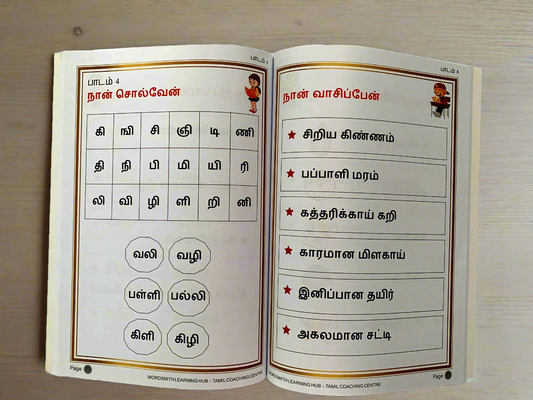 பாடம் 4
பாடம் 4
நான் சொல்வேன்
கி ஙி சி ஞி டி ணி
தி நி பி மி யி ரி
லி வி ழி ளி றி னி
வலி வழி
பள்ளி பல்லி
கிளி கிழி
Page
WORDSMITH LEARNING HUB - TAMIL COACHING CENTRE
பாடம் 4
நான் வாசிப்பேன்
சிறிய கிண்ணம்
பப்பாளி மரம்
கத்தரிக்காய் கறி
காரமான மிளகாய்
இனிப்பான தயிர்
அகலமான சட்டி
WORDSMITH LEARNING HUB - TAMIL COACHING CENTRE
Page